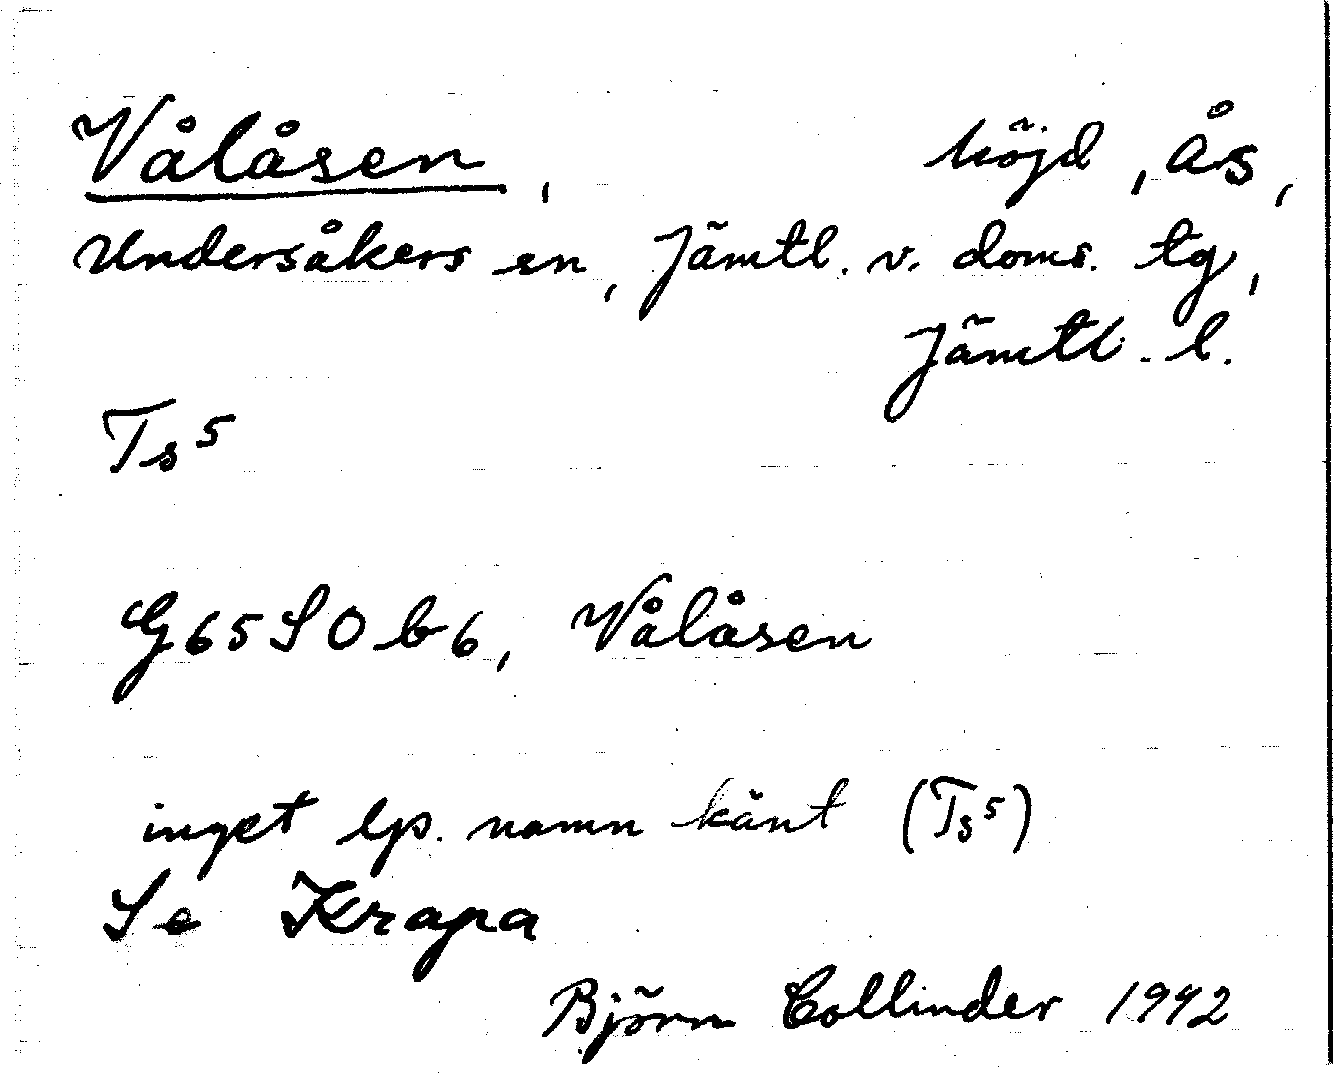 Vålåsen, höjd, ås,
Undersåkers sn, Jämtl. v. doms. tg,
Jämtl. l.
Ts5
G65SOb6, Vålåsen
inget lp. namn känt (Ts5)
Se Krapa
Björn Collinder 1942